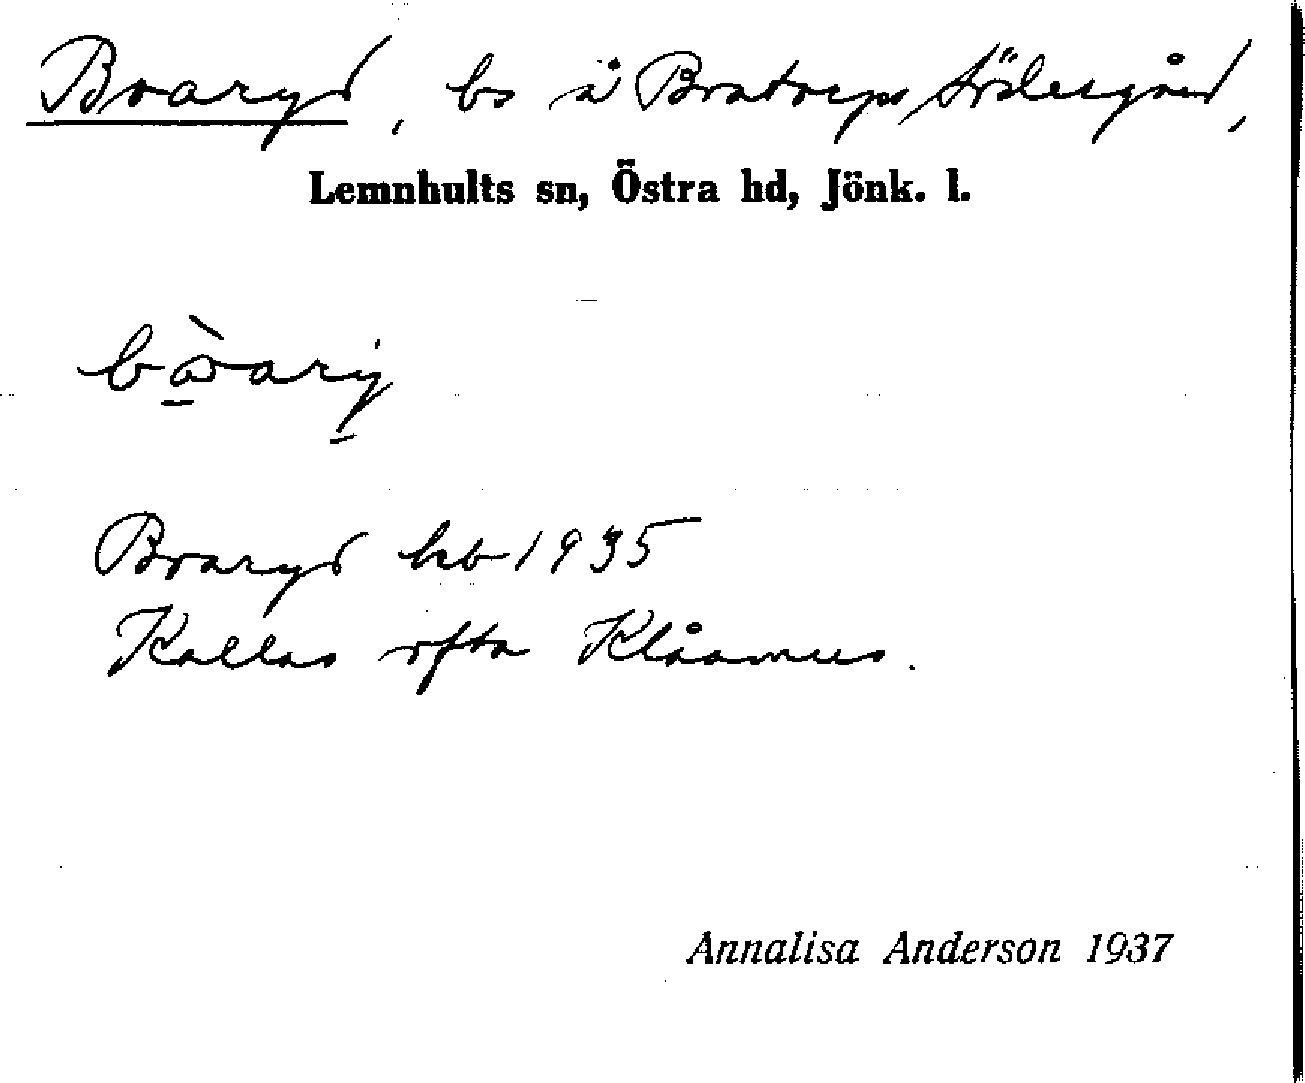 Boaryd, bs å Bratorps Södergård,
Lemnhults sn, Östra hd, Jönk. l.
Boaryd 1935
Kallas ofta Klåamus.
Annalisa Anderson 1937